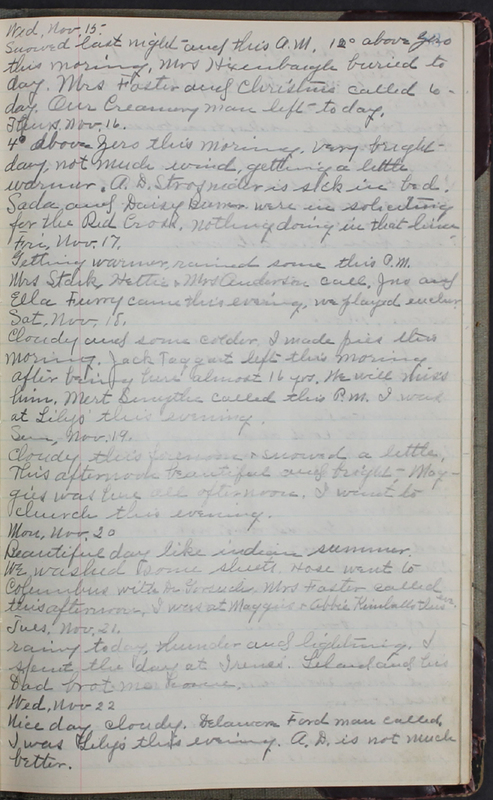 Wed, Nov. 15-
Snowed last night and this A.M. 12° above zero
this morning, Mrs Hixenbaugh buried to
day. Mrs Foster and Christine called to-
day. Our Creamery man left to day.
Thurs, Nov. 16.
4° above zero this morning, very bright
day, not much wind, getting a little
warmer. A. D. Strosnider is sick in bed.
Sada and Daisy were in soliciting
for the Red Cross, nothing doing in that line
Fri, Nov. 17,
Getting warmer, rained some this P.M.
Mrs Stark, Hettie & Mrs Anderson call. Jno and
Ella Furry came this evening, we played euchre
Sat, Nov. 18.
Cloudy and some colder, I made pies this
morning. Jack Taggart left this morning
after being here almost 16 yrs. We will miss
him, Mert Smythe called this P.M. I was
at Lily's this evening.
Sun, Nov. 19.
Cloudy this forenoon & snowed a little,
This afternoon beautiful and bright, Mag-
gies was here all afternoon. I went to
church this evening.
Mon, Nov. 20
Beautiful day like indian summer.
We washed some sheets, Rose went to
Columbus with Mr Gorsuch, Mrs Foster called
this afternoon, I was at Maggies & Abbie Kimballs this eve.
Tues, Nov. 21.
rainy today, thunder and lightning, I
spent the day at Irenes. Leland and his
Dad brot me home.
Wed, Nov 22
Nice day cloudy. Delaware Ford man called,
I was Lily's this evening. A. D. is not much
better.